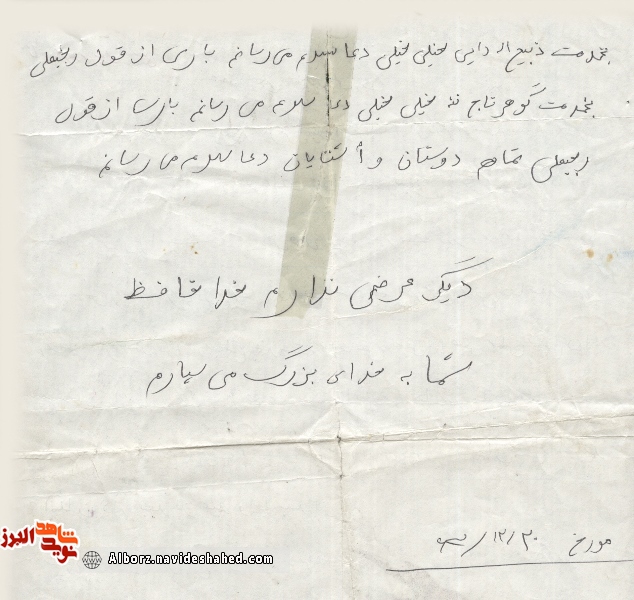 بخدمت ذبیح اله دایی خیلی خیلی دعا سلام می رسانم باری از قول رجبعلی
بخدمت گوهر تاج ننه خیلی خیلی دعا سلام می رسانم باری از قول
رجبعلی تمام دوستان و آشنایان دعا سلام می رسانم
دیگر عرضی ندارم خدا حافظ
شما به خدای بزرگ می سپارم
مورخ ۱۲/۳۰/
شاهد البرز
نوید
Alborz.navideshahed.com